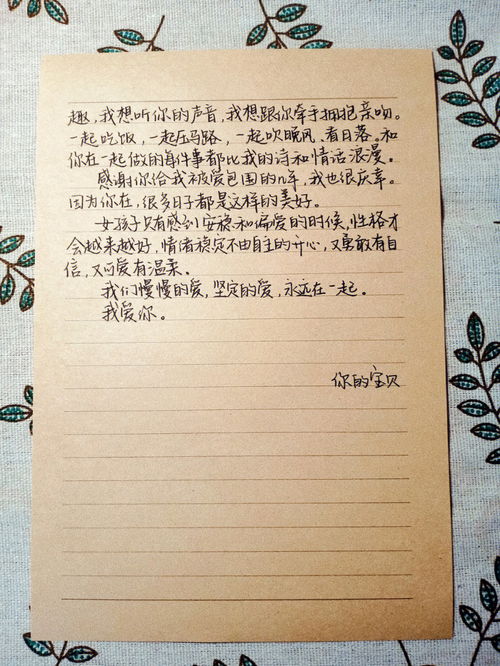 趣，我想听你的声音，我想跟你牵手拥抱亲吻。
一起吃饭，一起压马路，一起吹晚风、看日落。和
你在一起做的每件事都比我的诗和情话浪漫。
感谢你给我被爱包围的几年，我也很庆幸。
因为你在，很多日子都是这样的美好。
女孩子只有感到安稳和偏爱的时候，性格才
会越来越好，情绪稳定不由自主的开心，又勇敢有自
信，又可爱有温柔。
我们慢慢的爱，坚定的爱，永远在一起。
我爱你。
你的宝贝